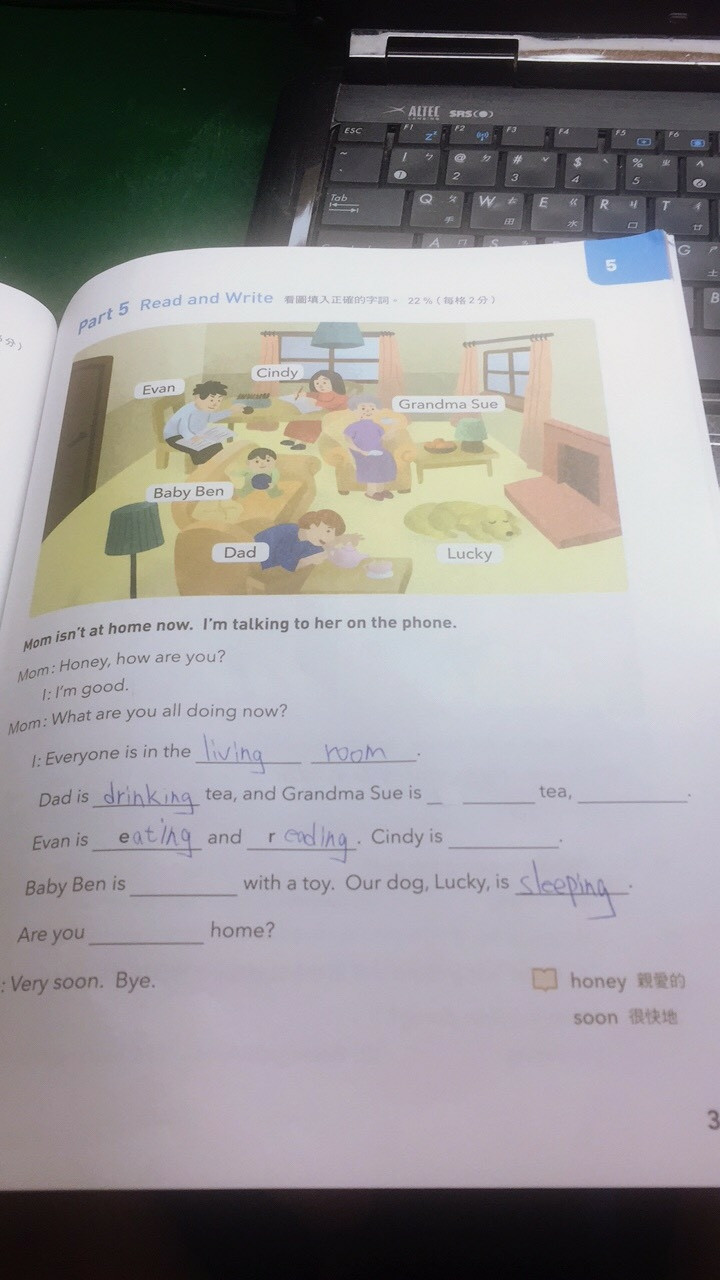 ALTEC
LANSING SRS(●)
ESC F1 F2 F3 F4 F5 F6
~ ! ㄅ @ ㄉ # ˇ $ ˋ % ㄓ ^
1 2 3 4 5 6
Tab Q ㄆ W ㄊ E ㄍ R ㄐ T ㄔ
手 田 水 口 廿
A ㄇ S G
土
B
5
分)
Part 5 Read and Write 看圖填入正確的字詞。 22%(每格2分)
Cindy
Evan
Grandma Sue
Baby Ben
Dad
Lucky
Mom isn't at home now. I'm talking to her on the phone.
Mom: Honey, how are you?
I: I'm good.
Mom: What are you all doing now?
I: Everyone is in the living room.
Dad is drinking tea, and Grandma Sue is _ ______ tea, ______.
Evan is eating and reading. Cindy is ______.
Baby Ben is ______ with a toy. Our dog, Lucky, is sleeping.
Are you ______ home?
: Very soon. Bye.
honey 親愛的
soon 很快地
3